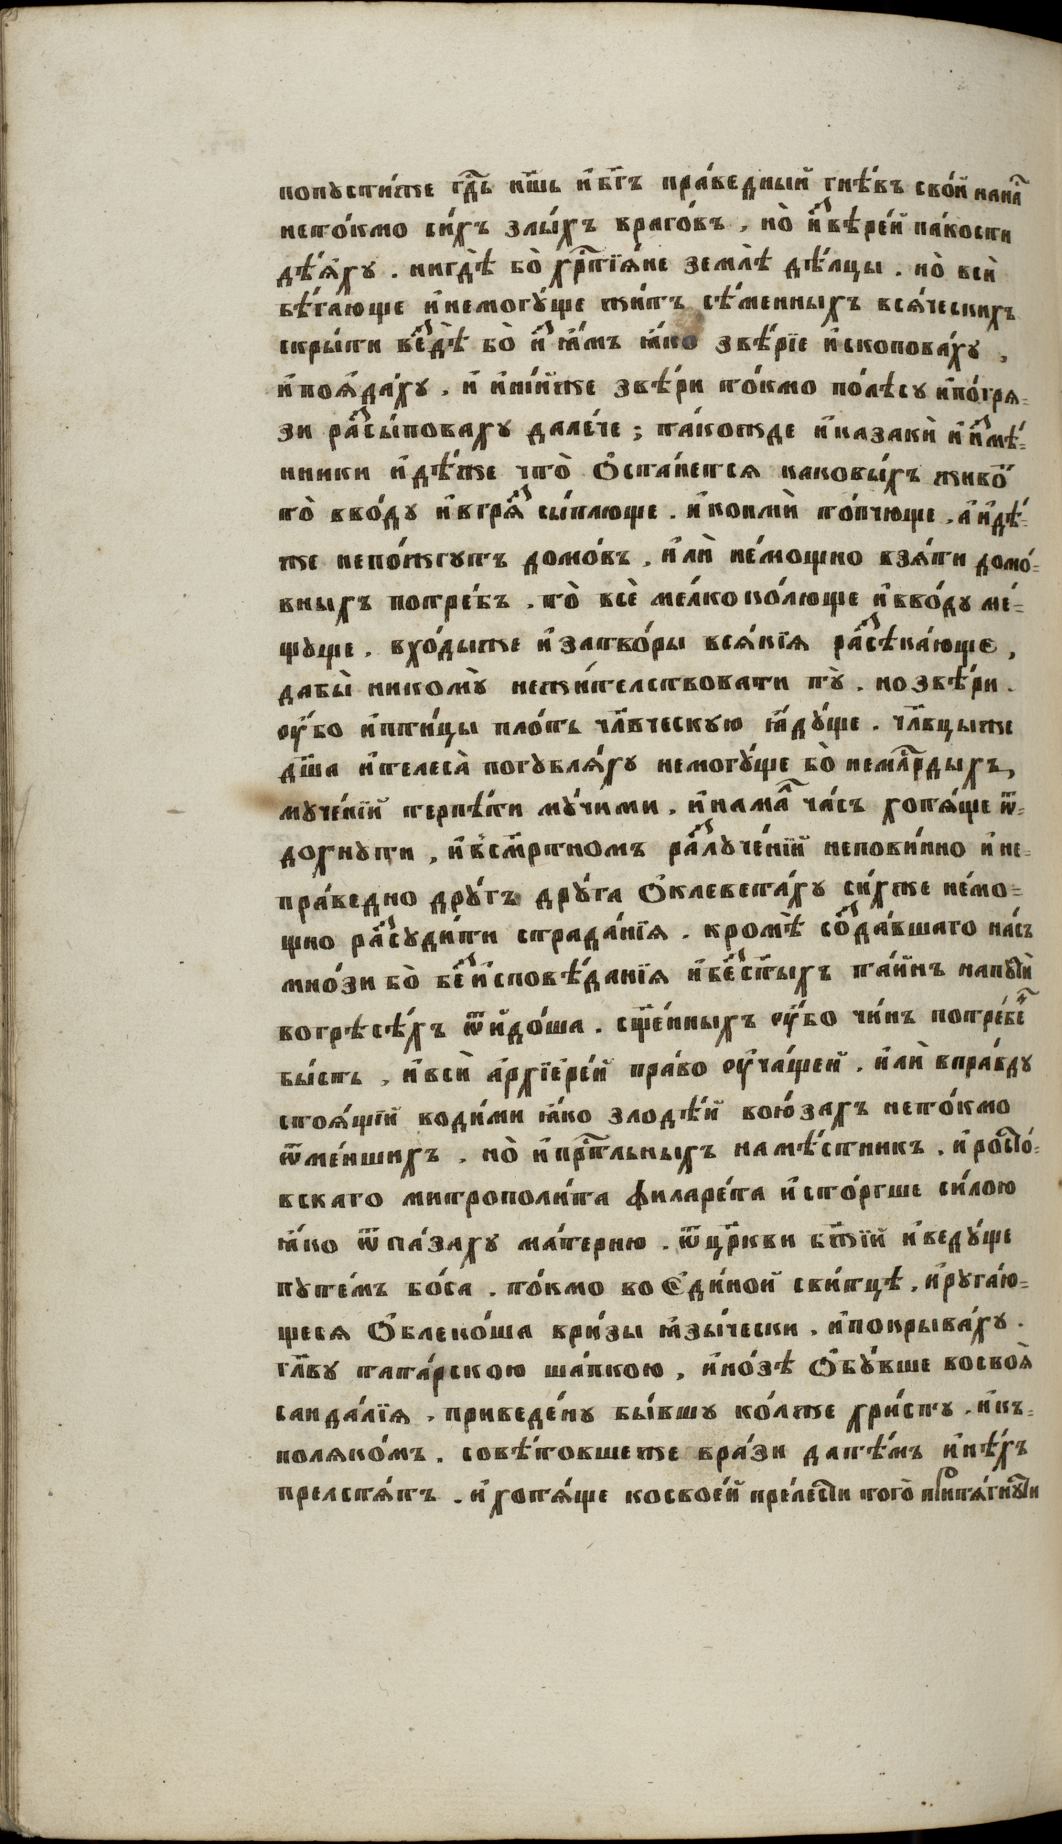 попусти́же гдⷭ҇ь на́шь и҆бг҃ъ пра́ведный гнѣ́въ сво́й нанⷭ҇а
нето́кмо си́хъ злы́хъ враго́въ , но̀ и҆ꙁвѣре́й па́кости
дѣ́ѧхꙋ . нигдѣ̀ бо̀ хрⷭ҇тїѧ́не землѣ̀ дѣ́лцы . но̀ всѝ
бѣ́гающе и҆немогꙋ́ще жи́тъ сѣ́менныхъ всѧ́ческихъ
скры́ти веꙁдѣ̀ бо̀ и҆ꙁꙗ́мъ ꙗ҆́ко звѣ́рїе и҆скопова́хꙋ ,
и҆поѧ҆да́хꙋ . и҆ и҆ні́иже звѣ́ри то́кмо по́лѣсꙋ и҆по́грѧ-
зи раꙁсы́повахꙋ дале́че ; та́кожде и҆казакѝ и҆и҆ꙁмѣ́-
нники и҆дѣ́же что̀ ѡ҆ста́нетсѧ каковы́хъ живо́
то̀ вво́дꙋ и҆вгрѧ́ꙁ сы́плюще . и҆коимѝ то́пчюще . а҆ и҆дѣ́-
же непо́жгꙋтъ домо́въ , и҆лѝ не́мощно взѧ́ти домо́-
вныхъ потре́бъ . то̀ всѐ ме́лко ко́люще и҆вво́дꙋ ме́-
щꙋще . вхо́дыже и҆затво́ры всѧ́кїѧ раꙁсѣка́юще ,
дабы̀ никомꙋ̀ нежи́телствовати тꙋ̀ . нозвѣ́ри .
ᲂу҆́бо и҆пти́цы пло́ть члв҃ческꙋю ꙗ҆дꙋ́ще . члв҃цыже
дш҃а и҆телеса̀ погꙋблѧ́хꙋ немогꙋ́ще бо̀ немлⷭ҇рдыхъ
мꙋче́нїй терпѣ́ти мꙋ́чими . и҆нама́л ча́съ хотѧ́ще ѿ-
дохнꙋти , и҆всме́ртномъ раꙁлꙋче́нїй непови́нно и҆не-
пра́ведно дрꙋ́гъ дрꙋ́га ѡ҆клевета́хꙋ си́хже не́мо-
щно раꙁсꙋди́ти страда́нїѧ . кромѣ̀ соꙁда́вшаго на́съ
мно́зи бо̀ беꙁи҆сповѣ́данїѧ и҆беꙁст҃ы́хъ та́йнъ напꙋтѝ
вогрѣсѣ́хъ ѿидо́ша . сщ҃е́нныхъ ᲂу҆́бо чи́нъ потребе́н
бы́сть , и҆всѝ а҆рхїере́й пра́во ᲂу҆ча́щей . и҆лѝ впра́вдꙋ
стоѧ́щїй води́ми ꙗ҆́ко злодѣ́й вою́захъ нето́кмо
ѿме́ншихъ . но̀ и҆прⷭ҇то́льныхъ намѣ́стникъ . и҆росто́-
вскаго митрополи́та филаре́та и҆сто́ргше си́лою
ꙗ҆́ко ѿпа́захꙋ ма́терню . ѿцр҃кви бж҃їй и҆ведꙋ́ще
пꙋте́мъ бо́са . то́кмо во є҆ди́ной сви́тцѣ . и҆рꙋга́ю-
щесѧ ѡ҆блеко́ша ври́зы ꙗ҆зы́чески . и҆покрыва́хꙋ .
глв҃ꙋ тата́рскою ша́пкою , и҆но́зѣ ѡ҆бꙋ́вше восвоѧ̀
санда́лїѧ . приведе́нꙋ бы́вшꙋ ко́лже хри́стꙋ . и҆къ-
полѧко́мъ . совѣ́товшеже врази́ датѣ́мъ и҆нѣ́хъ
прелстѧ́тъ . и҆хотѧ́ще косвое́й пре́лести того̀ притѧ́гнꙋти